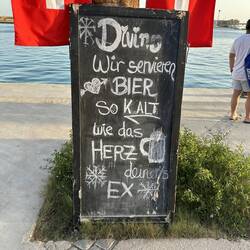 Divino
Wir servieren
BIER
SO KALT
wie das
HERZ
deiner's
EX